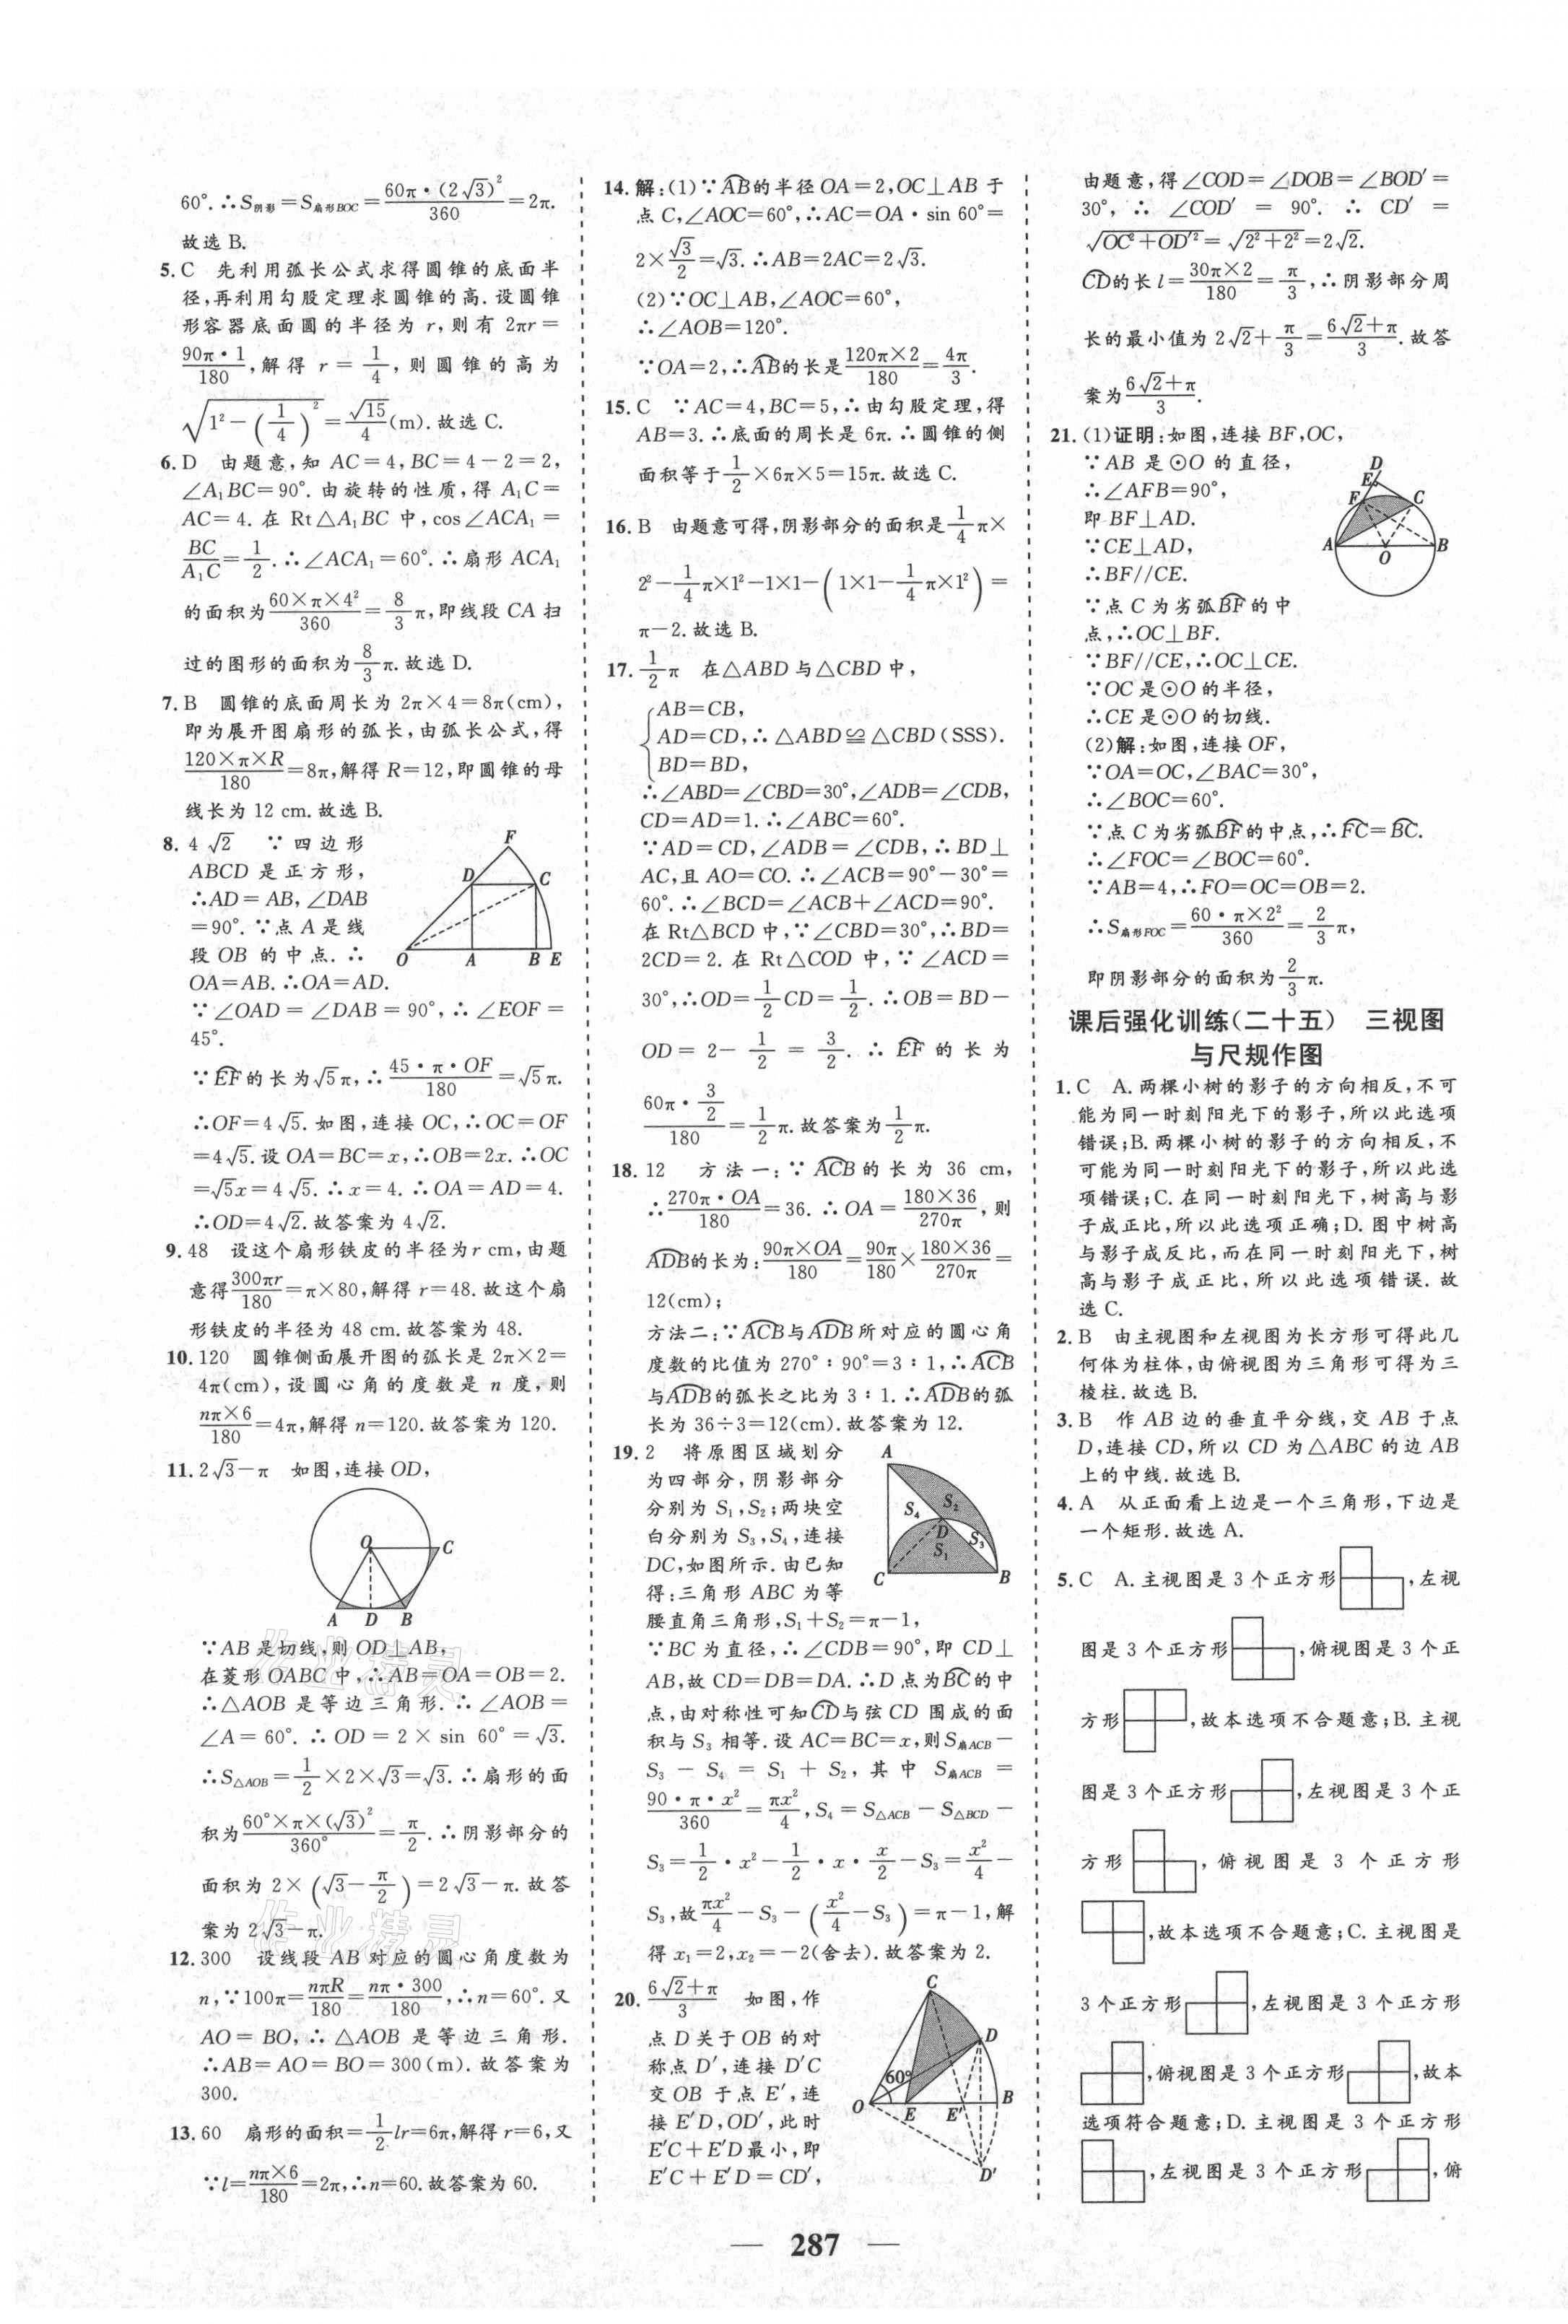 60°.∴S阴影=S扇形BOC=60π·(2√3)²/360=2π.
故选 B.
5.C 先利用弧长公式求得圆锥的底面半
径,再利用勾股定理求圆锥的高.设圆锥
形容器底面圆的半径为 r,则有 2πr=
90π·1/180,解得 r=1/4,则圆锥的高为
√(1²-(1/4)²)=√15/4(m).故选 C.
6.D 由题意,知 AC=4,BC=4-2=2,
∠A₁BC=90°.由旋转的性质,得 A₁C=
AC=4.在 Rt△A₁BC 中,cos∠ACA₁=
BC/A₁C=1/2.∴∠ACA₁=60°.∴扇形 ACA₁
的面积为60×π×4²/360=8/3π,即线段 CA 扫
过的图形的面积为8/3π.故选 D.
7.B 圆锥的底面周长为 2π×4=8π(cm),
即为展开图扇形的弧长,由弧长公式,得
120×π×R/180=8π,解得 R=12,即圆锥的母
线长为 12 cm.故选 B.
8.4√2 ∵四边形
ABCD 是正方形,
∴AD=AB,∠DAB
=90°.∵点 A 是线
段 OB 的中点.∴
OA=AB.∴OA=AD.
F
D
C
O
A
B E
∵∠OAD=∠DAB=90°,∴∠EOF=
45°.
∵EF⌒的长为√5π,∴45·π·OF/180=√5π.
∴OF=4√5.如图,连接 OC,∴OC=OF
=4√5.设 OA=BC=x,∴OB=2x.∴OC
=√5x=4√5.∴x=4.∴OA=AD=4.
∴OD=4√2.故答案为 4√2.
9.48 设这个扇形铁皮的半径为 r cm,由题
意得300πr/180=π×80,解得 r=48.故这个扇
形铁皮的半径为 48 cm.故答案为 48.
10.120 圆锥侧面展开图的弧长是 2π×2=
4π(cm),设圆心角的度数是 n 度,则
nπ×6/180=4π,解得 n=120.故答案为 120.
11.2√3-π 如图,连接 OD,
O
C
A
D
B
∵AB 是切线,则 OD⊥AB,
在菱形 OABC 中,∴AB=OA=OB=2.
∴△AOB 是等边三角形.∴∠AOB=
∠A=60°.∴OD=2×sin 60°=√3.
∴S△AOB=1/2×2×√3=√3.∴扇形的面
积为60°×π×(√3)²/360°=π/2.∴阴影部分的
面积为 2×(√3-π/2)=2√3-π.故答
案为 2√3-π.
12.300 设线段 AB 对应的圆心角度数为
n,∵100π=nπR/180=nπ·300/180,∴n=60°.又
AO=BO,∴△AOB 是等边三角形.
∴AB=AO=BO=300(m).故答案为
300.
13.60 扇形的面积=1/2lr=6π,解得 r=6,又
∵l=nπ×6/180=2π,∴n=60.故答案为 60.
14.解:(1)∵AB⌒的半径 OA=2,OC⊥AB 于
点 C,∠AOC=60°,∴AC=OA·sin 60°=
2×√3/2=√3.∴AB=2AC=2√3.
(2)∵OC⊥AB,∠AOC=60°,
∴∠AOB=120°.
∵OA=2,∴AB⌒的长是120π×2/180=4π/3.
15.C ∵AC=4,BC=5,∴由勾股定理,得
AB=3.∴底面的周长是 6π.∴圆锥的侧
面积等于1/2×6π×5=15π.故选 C.
16.B 由题意可得,阴影部分的面积是1/4π×
2²-1/4π×1²-1×1-(1×1-1/4π×1²)=
π-2.故选 B.
17.1/2π 在△ABD 与△CBD 中,
AB=CB,
AD=CD,∴△ABD≌△CBD(SSS).
BD=BD,
∴∠ABD=∠CBD=30°,∠ADB=∠CDB,
CD=AD=1.∴∠ABC=60°.
∵AD=CD,∠ADB=∠CDB,∴BD⊥
AC,且 AO=CO.∴∠ACB=90°-30°=
60°.∴∠BCD=∠ACB+∠ACD=90°.
在 Rt△BCD 中,∵∠CBD=30°,∴BD=
2CD=2.在 Rt△COD 中,∵∠ACD=
30°,∴OD=1/2CD=1/2.∴OB=BD-
OD=2-1/2=3/2.∴EF⌒的长为
60π·3/2/180=1/2π.故答案为1/2π.
18.12 方法一:∵ACB⌒的长为 36 cm,
∴270π·OA/180=36.∴OA=180×36/270π,则
ADB⌒的长为:90π×OA/180=90π/180×180×36/270π=
12(cm);
方法二:∵ACB⌒与ADB⌒所对应的圆心角
度数的比值为 270°:90°=3:1,∴ACB⌒
与ADB⌒的弧长之比为 3:1.∴ADB⌒的弧
长为 36÷3=12(cm).故答案为 12.
19.2 将原图区域划分
为四部分,阴影部分
分别为 S₁,S₂;两块空
白分别为 S₃,S₄,连接
DC,如图所示.由已知
得:三角形 ABC 为等
腰直角三角形,S₁+S₂=π-1,
A
S₄
S₂
D
S₃
S₁
C
B
∵BC 为直径,∴∠CDB=90°,即 CD⊥
AB,故 CD=DB=DA.∴D 点为BC⌒的中
点,由对称性可知CD⌒与弦 CD 围成的面
积与 S₃ 相等.设 AC=BC=x,则 S扇ACB-
S₃-S₄=S₁+S₂,其中 S扇ACB=
90·π·x²/360=πx²/4,S₄=S△ACB-S△BCD-
S₃=1/2·x²-1/2·x·x/2-S₃=x²/4-
S₃,故πx²/4-S₃-(x²/4-S₃)=π-1,解
得 x₁=2,x₂=-2(舍去).故答案为 2.
20.6√2+π/3 如图,作
点 D 关于 OB 的对
称点 D′,连接 D′C
交 OB 于点 E′,连
接 E′D,OD′,此时
E′C+E′D 最小,即
E′C+E′D=CD′,
C
D
60°
O
E
E′
B
D′
由题意,得∠COD=∠DOB=∠BOD′=
30°,∴∠COD′=90°.∴CD′=
√(OC²+OD′²)=√(2²+2²)=2√2.
CD⌒的长 l=30π×2/180=π/3,∴阴影部分周
长的最小值为 2√2+π/3=6√2+π/3.故答
案为6√2+π/3.
21.(1)证明:如图,连接 BF,OC,
∵AB 是⊙O 的直径,
∴∠AFB=90°,
即 BF⊥AD.
∵CE⊥AD,
∴BF//CE.
∵点 C 为劣弧BF⌒的中
点,∴OC⊥BF.
D
E
F
C
A
O
B
∵BF//CE,∴OC⊥CE.
∵OC 是⊙O 的半径,
∴CE 是⊙O 的切线.
(2)解:如图,连接 OF,
∵OA=OC,∠BAC=30°,
∴∠BOC=60°.
∵点 C 为劣弧BF⌒的中点,∴FC⌒=BC⌒.
∴∠FOC=∠BOC=60°.
∵AB=4,∴FO=OC=OB=2.
∴S扇形FOC=60·π×2²/360=2/3π,
即阴影部分的面积为2/3π.
课后强化训练(二十五) 三视图
与尺规作图
1.C A.两棵小树的影子的方向相反,不可
能为同一时刻阳光下的影子,所以此选项
错误;B.两棵小树的影子的方向相反,不
可能为同一时刻阳光下的影子,所以此选
项错误;C.在同一时刻阳光下,树高与影
子成正比,所以此选项正确;D.图中树高
与影子成反比,而在同一时刻阳光下,树
高与影子成正比,所以此选项错误.故
选 C.
2.B 由主视图和左视图为长方形可得此几
何体为柱体,由俯视图为三角形可得为三
棱柱.故选 B.
3.B 作 AB 边的垂直平分线,交 AB 于点
D,连接 CD,所以 CD 为△ABC 的边 AB
上的中线.故选 B.
4.A 从正面看上边是一个三角形,下边是
一个矩形.故选 A.
5.C A.主视图是 3 个正方形,左视
图是 3 个正方形,俯视图是 3 个正
方形,故本选项不合题意;B.主视
图是 3 个正方形,左视图是 3 个正
方形,俯视图是 3 个正方形
,故本选项不合题意;C.主视图是
3 个正方形,左视图是 3 个正方形
,俯视图是 3 个正方形,故本
选项符合题意;D.主视图是 3 个正方形
,左视图是 3 个正方形,俯
作业精灵
作业精灵
— 287 —